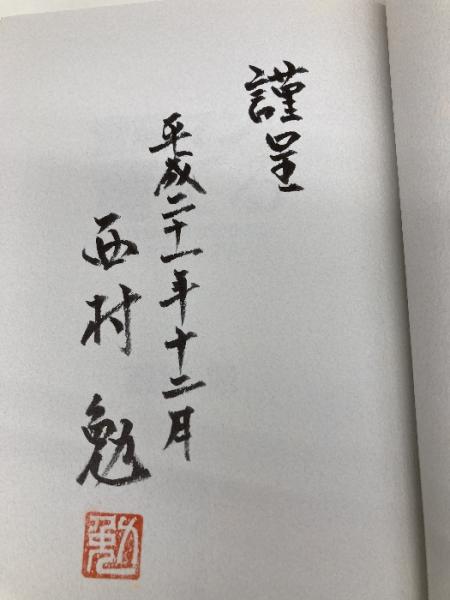 謹呈
平成二十一年十二月
西村 勉
勉